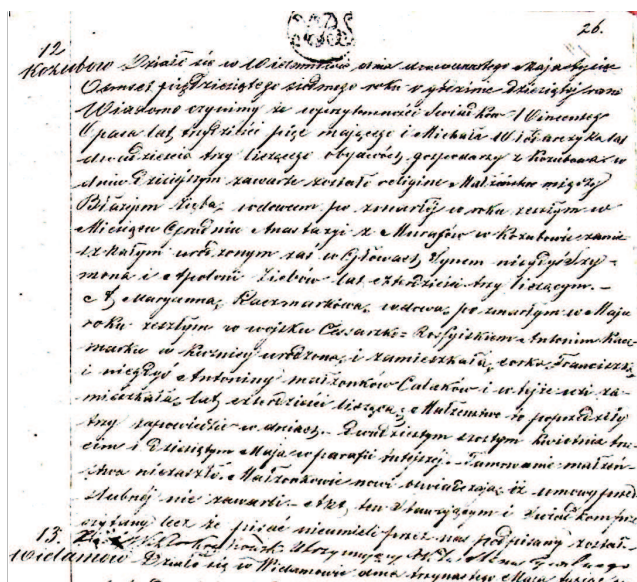 26.
12
Kozubow Działo się w Widamowie dnia dwunastego Maja tysiąc
Ośmset pięćdziesiątego siódmego roku o godzinie dziesiątej rano
Wiadomo czynimy że w przytomności świadków Wincentego
lat trzydzieści pięć mającego i Michała Włodarczyka lat
dwadzieścia trzy liczącego obydwóch gospodarzy z Kozubowa w
dniu dzisiejszym zawarte zostało religijne Małżeństwo między
Błażejem Ziębą, wdowcem po zmarłéj w roku zeszłym w
Miesiącu Grudniu Anastazyi z w Kozubowie zamie-
szkałym urodzonym zaś w synem niegdyś Szy-
mona i Apolonii Ziębów lat czterdzieści trzy liczącym. —
A, Maryanną Kaczmarkową, wdową, po zmarłym w Maju
roku zeszłym w wojsku Cesarsko = Rossyjskiem Antonim Kacz-
marku w urodzoną, i zamieszkałą, córką Franciszka
i niegdyś Antoniny małżonków i w tejże wsi za-
mieszkałą, lat czterdzieści liczącą, Małżeństwo to poprzedziły
trzy zapowiedzie w dniach, dwudziestym szóstym Kwietnia trze-
cim i dziesiątym Maja w parafii tutejszéj. Tamowanie małżeń-
stwa niezaszło. Małżonkowie nowi oświadczają, iż umowy przed-
ślubnéj nie zawarli. Akt ten stawającym i świadkom prze-
czytany lecz że pisać nieumieli przez nas podpisany został.
13.
Widamow Działo się w Widamowie dnia trzynastego Maja tysiąc